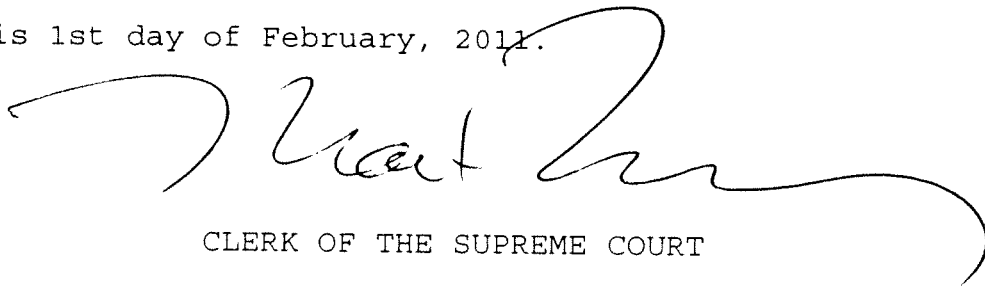 is 1st day of February, 2011.
CLERK OF THE SUPREME COURT